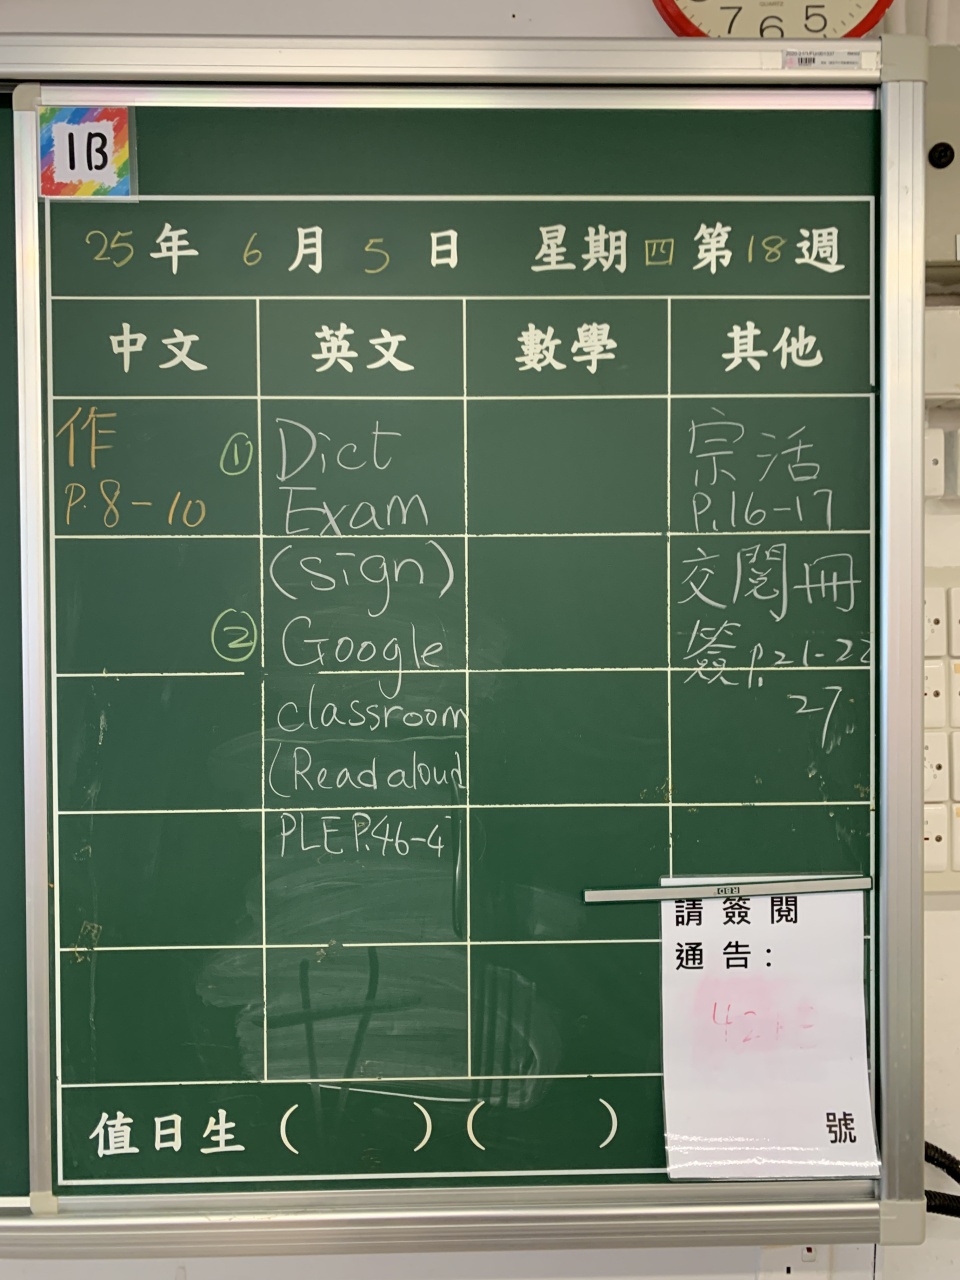 7 6 5
QUARTZ
1B
25年 6月 5日 星期四 第18週
中文 英文 數學 其他
作
P.8-10
① Dict
Exam
(sign)
② Google
classroom
(Read aloud
PLE P.46-4
宗活
P.16-17
交閱冊
簽 P.21-22
27
請簽閱
通告:
號
值日生 ( ) ( )